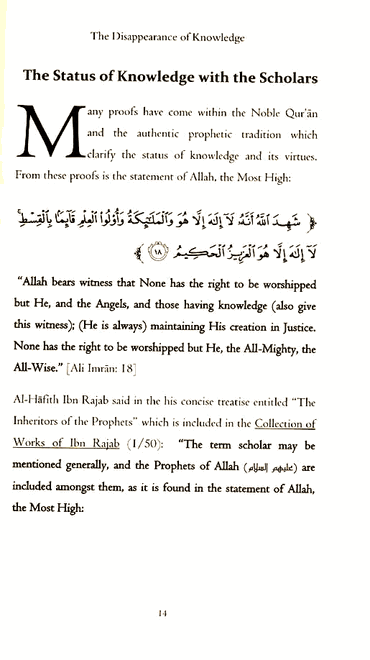 The Disappearance of Knowledge
The Status of Knowledge with the Scholars
Many proofs have come within the Noble Qur'ān
and the authentic prophetic tradition which
clarify the status of knowledge and its virtues.
From these proofs is the statement of Allah, the Most High:
﴿ شَهِدَ ٱللَّهُ أَنَّهُۥ لَآ إِلَٰهَ إِلَّا هُوَ وَٱلْمَلَٰٓئِكَةُ وَأُو۟لُوا۟ ٱلْعِلْمِ قَآئِمًۢا بِٱلْقِسْطِ
لَآ إِلَٰهَ إِلَّا هُوَ ٱلْعَزِيزُ ٱلْحَكِيمُ ١٨ ﴾
"Allah bears witness that None has the right to be worshipped
but He, and the Angels, and those having knowledge (also give
this witness); (He is always) maintaining His creation in Justice.
None has the right to be worshipped but He, the All-Mighty, the
All-Wise." [Ali Imrān: 18]
Al-Hāfith Ibn Rajab said in the his concise treatise entitled "The
Inheritors of the Prophets" which is included in the Collection of
Works of Ibn Rajab (1/50): "The term scholar may be
mentioned generally, and the Prophets of Allah (عليهم السلام) are
included amongst them, as it is found in the statement of Allah,
the Most High:
14